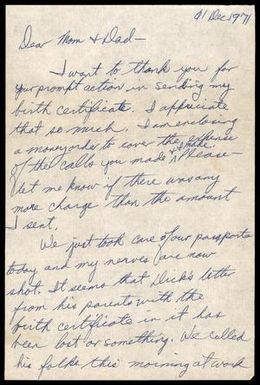 01 Dec 1971
Dear Mom & Dad—
I want to thank you for
your prompt action in sending my
birth certificate. I appreciate
that so much. I am enclosing
a money order to cover the expense
of the calls you made & made. Please—
let me know if there was any
more charge than the amount
I sent.
We just took care of our passports
today and my nerves are now
shot. It seems that Dick's letter
from his parents with the
birth certificate in it has
been lost or something. We called
his folks this morning at work